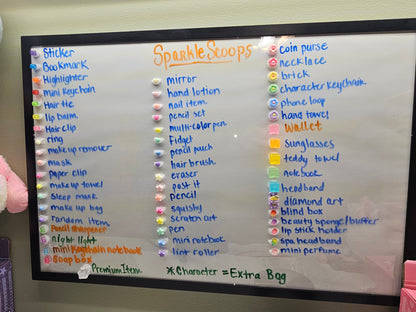 Sparkle Scoops
Sticker
Bookmark
Highlighter
mini Keychain
Hair tie
lip balm
Hair clip
ring
makeup remover
mask
paper clip
makeup towel
Sleep mask
make up bag
random item
Pencil sharpener
night light
mini Keychain notebook
Soap box
mirror
hand lotion
nail item
pencil set
multi-color pen
Fidget
pencil pouch
hair brush
eraser
post it
pencil
squishy
scratch art
pen
mini notebook
lint roller
coin purse
necklace
brick
character keychain
phone loop
hand towel
wallet
sunglasses
teddy towel
notebook
headband
diamond art
blind box
beauty sponge/buffer
lip stick holder
spa headband
mini perfume
Premium Item
*Character = Extra Bag